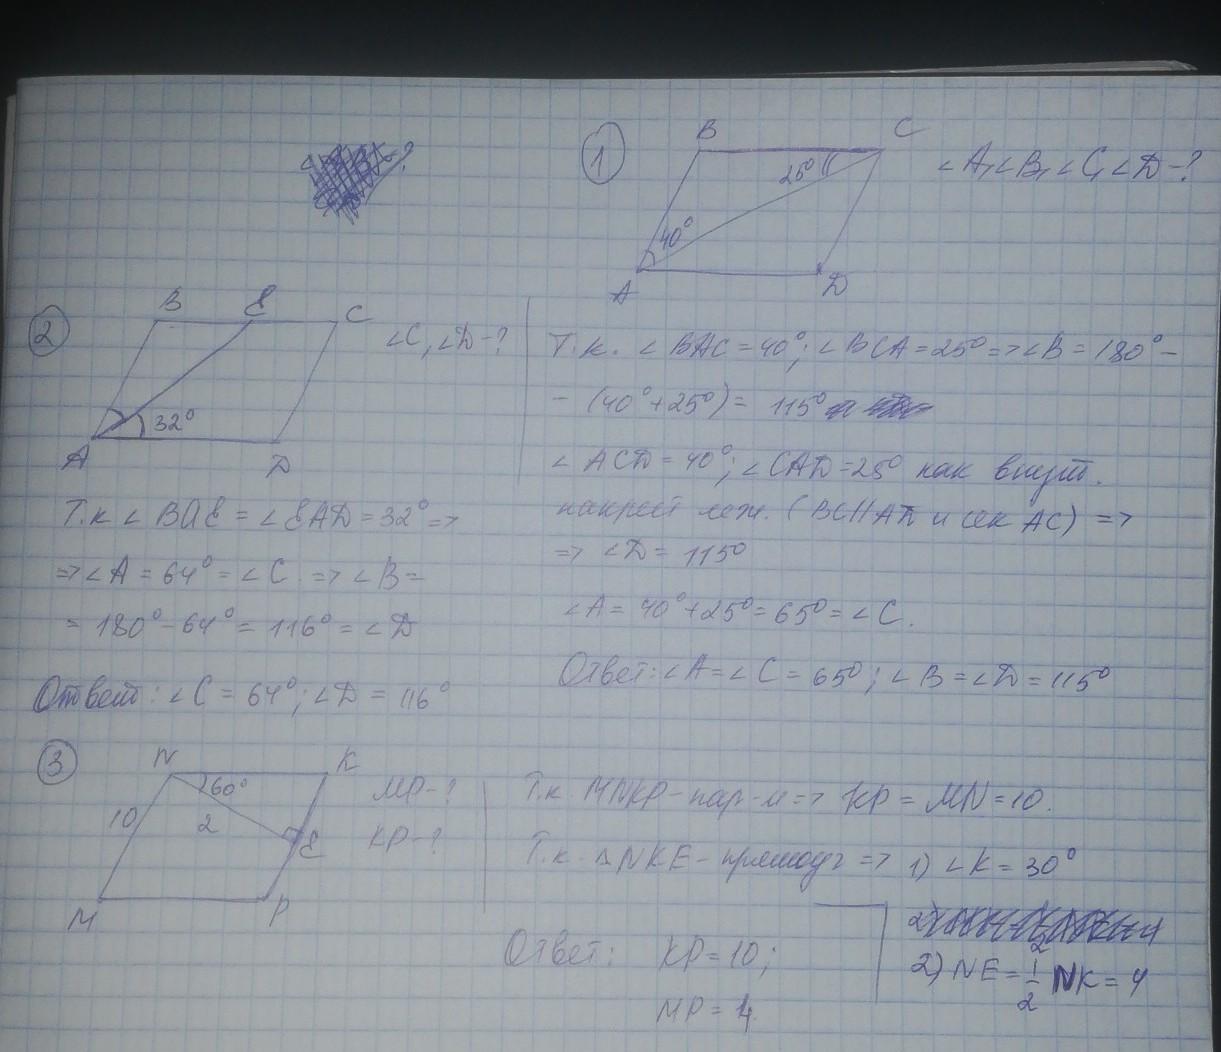 1
B
C
25°
∠A, ∠B, ∠C, ∠D-?
40°
A
D
Т.к. ∠BAC = 40°; ∠BCA = 25° => ∠B = 180° -
- (40° + 25°) = 115°
∠ACD = 40°; ∠CAD = 25° как внут.
накрест леж. (BC || AD и сек AC) =>
=> ∠D = 115°
∠A = 40° + 25° = 65° = ∠C.
Ответ: ∠A = ∠C = 65°; ∠B = ∠D = 115°
2
B
E
C
∠C, ∠D-?
32°
A
D
Т.к ∠BAE = ∠EAD = 32° =>
=> ∠A = 64° = ∠C. => ∠B =
= 180° - 64° = 116° = ∠D
Ответ: ∠C = 64°; ∠D = 116°
3
N
K
60°
MP-?
10
2
E
KP-?
M
P
Т.к. MNKP - пар-м => KP = MN = 10.
Т.к. ΔNKE - прямоуг => 1) ∠K = 30°
2) NE = 1/2 NK = 4
Ответ: KP = 10;
MP = 4.